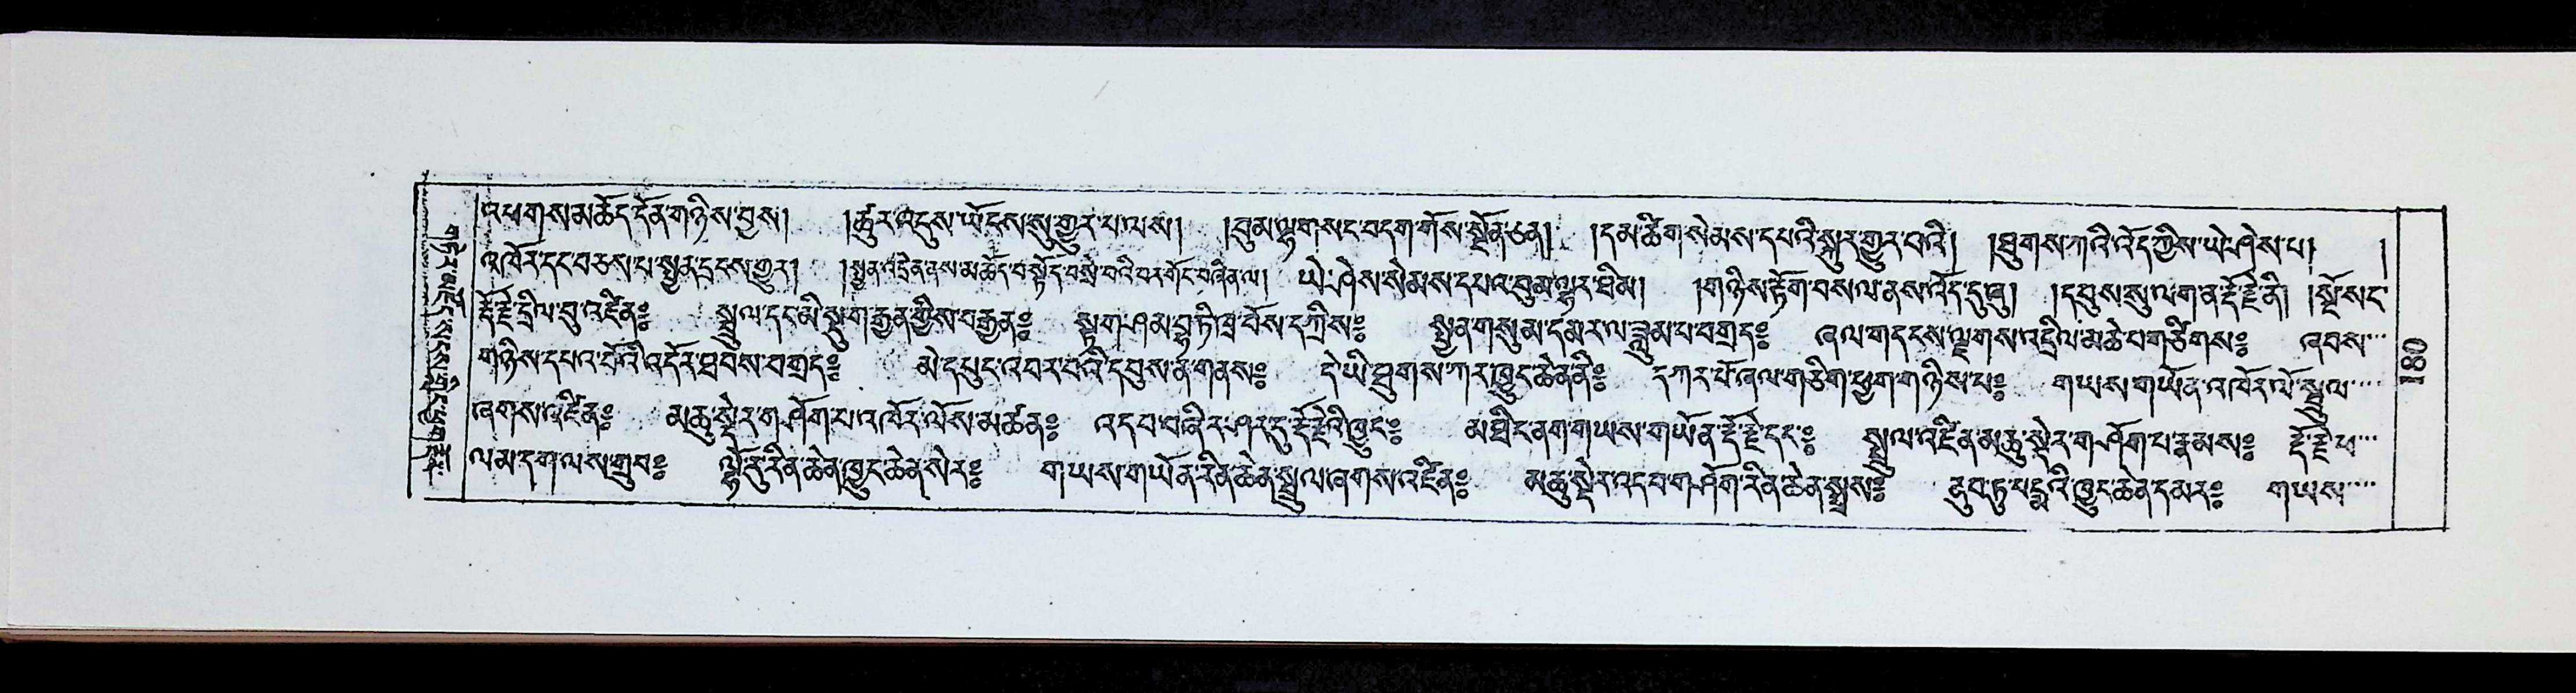 །འཕགས་མཆོད་དོན་གཉིས་བྱས། །ཚུར་འདུས་ཡོངས་སུ་གྱུར་པ་ལས། །བུམ་ལྷ་གསང་བདག་གོས་སྔོན་ཅན། །དམ་ཚིག་སེམས་དཔའི་སྐུར་གྱུར་བའི། །ཐུགས་ཀའི་འོད་ཀྱིས་ཡེ་ཤེས་པ། །
འཁོར་དང་བཅས་པ་སྤྱན་དྲངས་གྱུར། །སྤྱན་འདྲེན་ནས་མཆོད་བསྟོད་བསྲེ་བའི་བར་གོང་བཞིན་ལ། ཡེ་ཤེས་སེམས་དཔའ་བུམ་ལྷར་ཐིམ། །གཉིས་རྟོག་བསལ་ནས་འོད་དུ་ཞུ། །དབུས་སུ་ལག་ན་རྡོ་རྗེ་ནི། །སྔོ་སང་
རྡོ་རྗེ་དྲིལ་བུ་འཛིན༔ སྦྲུལ་དང་མི་སྡུག་རྒྱན་གྱིས་བརྒྱན༔ སྟག་ཤམ་བྷ་ཏི་ཐྲ་བོས་དཀྲིས༔ སྤྱན་གསུམ་དམར་ལ་ཟླུམ་པ་བགྲད༔ ཞལ་གདངས་ལྗགས་འདྲིལ་མཆེ་བ་གཙིགས༔ ཞབས....
གཉིས་དཔའ་བོའི་འདོར་ཐབས་བགྲད༔ མེ་དཔུང་འབར་བའི་དབུས་ན་གནས༔ དེ་ཡི་ཐུགས་ཀར་ཁྱུང་ཆེན་ནི༔ དཀར་པོ་ཞལ་གཅིག་ཕྱག་གཉིས་པ༔ གཡས་གཡོན་འཁོར་ལོ་སྦྲུལ....
ཞགས་འཛིན༔ མཆུ་སྡེར་གཤོག་པ་འཁོར་ལོས་མཚན༔ འདབ་བཞིར་ཤར་དུ་རྡོ་རྗེའི་ཁྱུང་༔ མཐིང་ནག་གཡས་གཡོན་རྡོ་རྗེ་དང་༔ སྦྲུལ་འཛིན་མཆུ་སྡེར་གཤོག་པ་རྣམས༔ རྡོ་རྗེ་ཕ...
ལམ་དག་ལས་གྲུབ༔ ལྷོ་རུ་རིན་ཆེན་ཁྱུང་ཆེན་སེར༔ གཡས་གཡོན་རིན་ཆེན་སྦྲུལ་ཞགས་འཛིན༔ མཆུ་སྡེར་འདབ་གཤོག་རིན་ཆེན་སྤྲས༔ ནུབ་ཏུ་པདྨའི་ཁྱུང་ཆེན་དམར༔ གཡས....